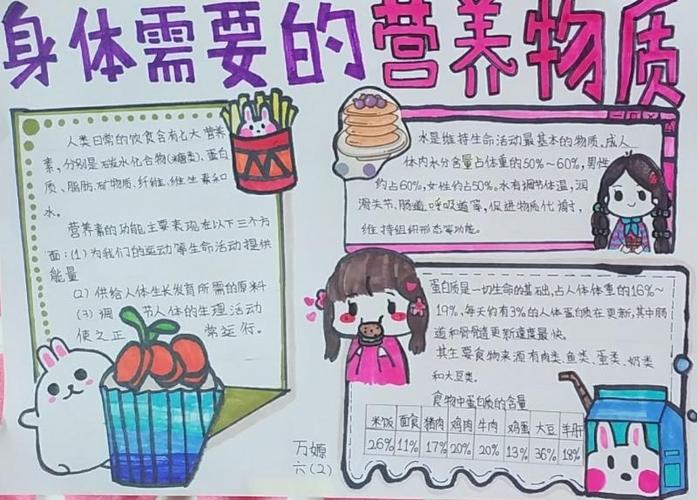 身体需要的营养物质
人类日常的饮食含有七大营养
素,分别是碳水化合物(糖类)、蛋白
质、脂肪、矿物质、纤维、维生素和
水。
营养素的功能主要表现在以下三个方
面:(1)为我们的运动等生命活动提供
能量
(2)供给人体生长发育所需的原料
(3)调节人体的生理活动
使之正常运行。
水是维持生命活动最基本的物质,成人
体内水分含量占体重的50%~60%,男性
约占60%,女性约占50%。水有调节体温,润
滑关节、肠道,呼吸道等,促进物质代谢,
维持组织形态等功能。
蛋白质是一切生命的基础,占人体体重的16%~
19%,每天约有3%的人体蛋白质在更新,其中肠
道和骨骨道更新速度最快。
其主要食物来源有肉类、鱼类、蛋类、奶类
和大豆类。
食物中蛋白质的含量
米饭 面食 猪肉 鸡肉 牛肉 鸡蛋 大豆 羊肝
26% 11% 17% 20% 20% 13% 36% 18%
万嫄
六(2)